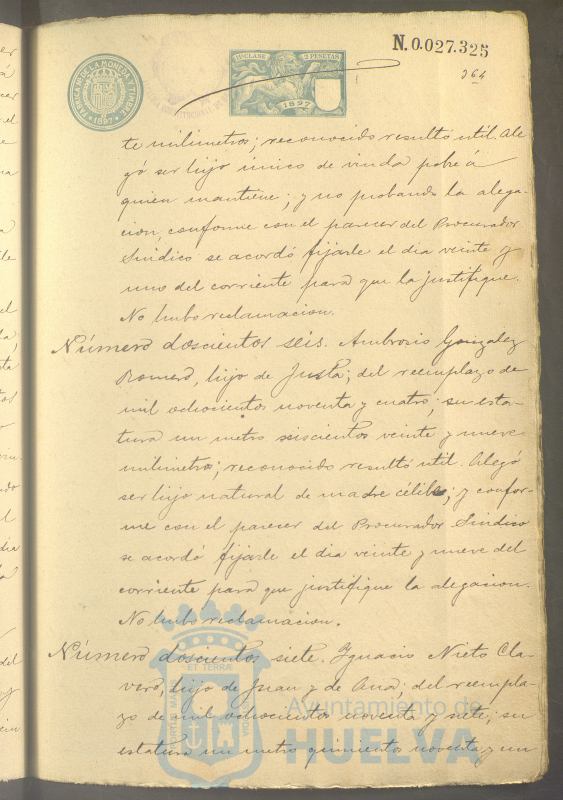 N.0.027.325
364
FÁBRICA NAL DE LA MONEDA Y TIMBRE
1897
11ª CLASE 2 PESETAS
1897
te milimetros; reconocido resultó util. Ale-
gó ser hijo único de viuda pobre á
quien mantiene; y no probando la alega-
cion, conforme con el parecer del Procurador
Sindico se acordó fijarle el dia veinte y
uno del corriente para que la justifique.
No hubo reclamacion.
Número doscientos seis. Ambrosio Gonzalez
Romero, hijo de Justa; del reemplazo de
mil ochocientos noventa y cuatro; su esta-
tura un metro seiscientos veinte y nueve
milimetros; reconocido resultó util. Alegó
ser hijo natural de madre célibe; y confor-
me con el parecer del Procurador Sindico
se acordó fijarle el dia veinte y nueve del
corriente para que justifique la alegacion.
No hubo reclamacion.
Número doscientos siete. Ignacio Nieto Cla-
vero, hijo de Juan y de Ana; del reempla-
zo de mil ochocientos noventa y siete; su
estatura un metro quinientos noventa y un
PORTUS MARIS ET TERRÆ CUSTODIA
Ayuntamiento de
HUELVA